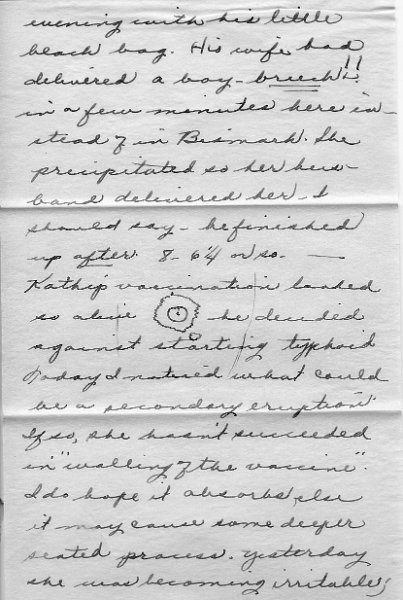 evening with his little
black bag. His wife had
delivered a boy - breech!!
in a few minutes here in-
stead of in Bismark. She
precipitated so her hus-
band delivered her - I
should say - he finished
up after. 8 - 6¼ or so. —
Kathip vaccination looked
so alive he decided
against starting typhoid
Today I noticed what could
be a secondary eruption.
If so, she hasn't succeeded
in "walling of the vaccine".
I do hope it absorbs, else
it may cause some deeper
seated process. Yesterday
she was becoming irritable,